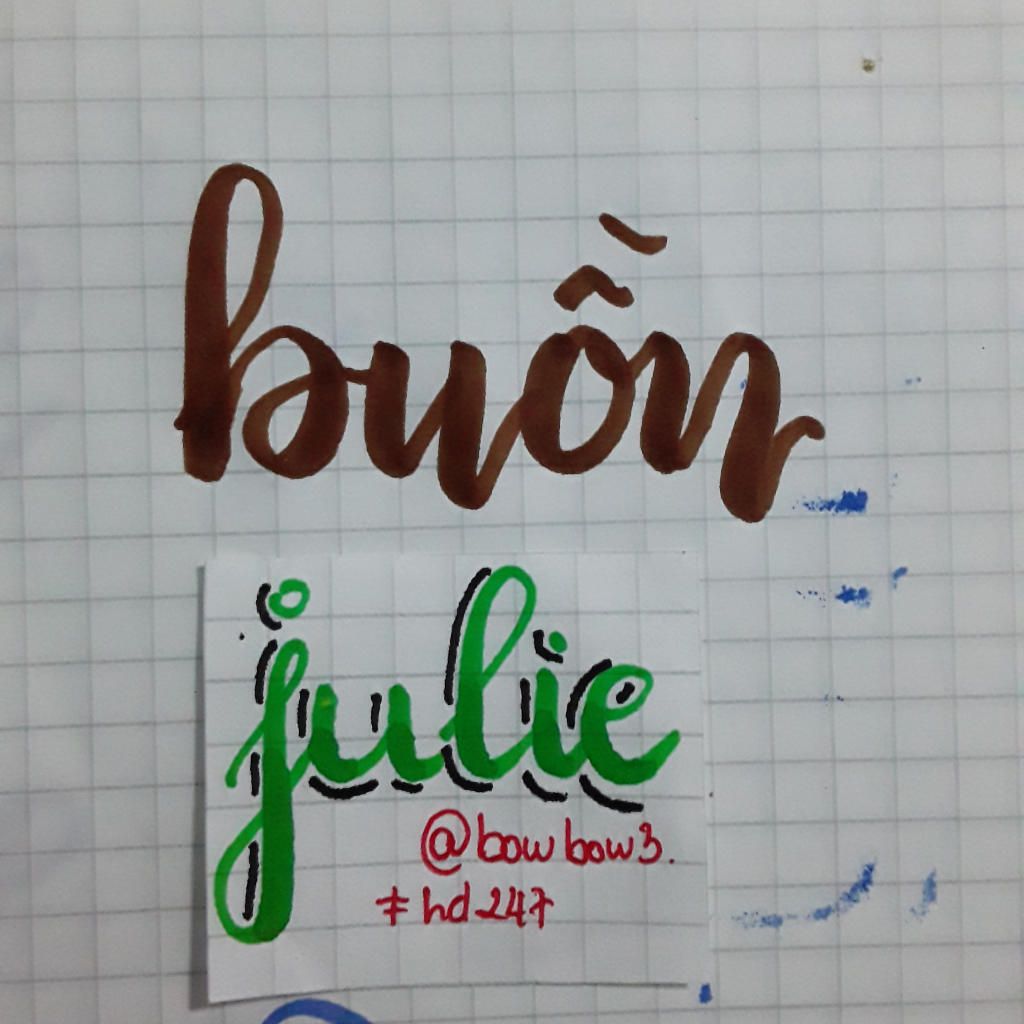 buồn
julie
@bowbow3.
#hd247